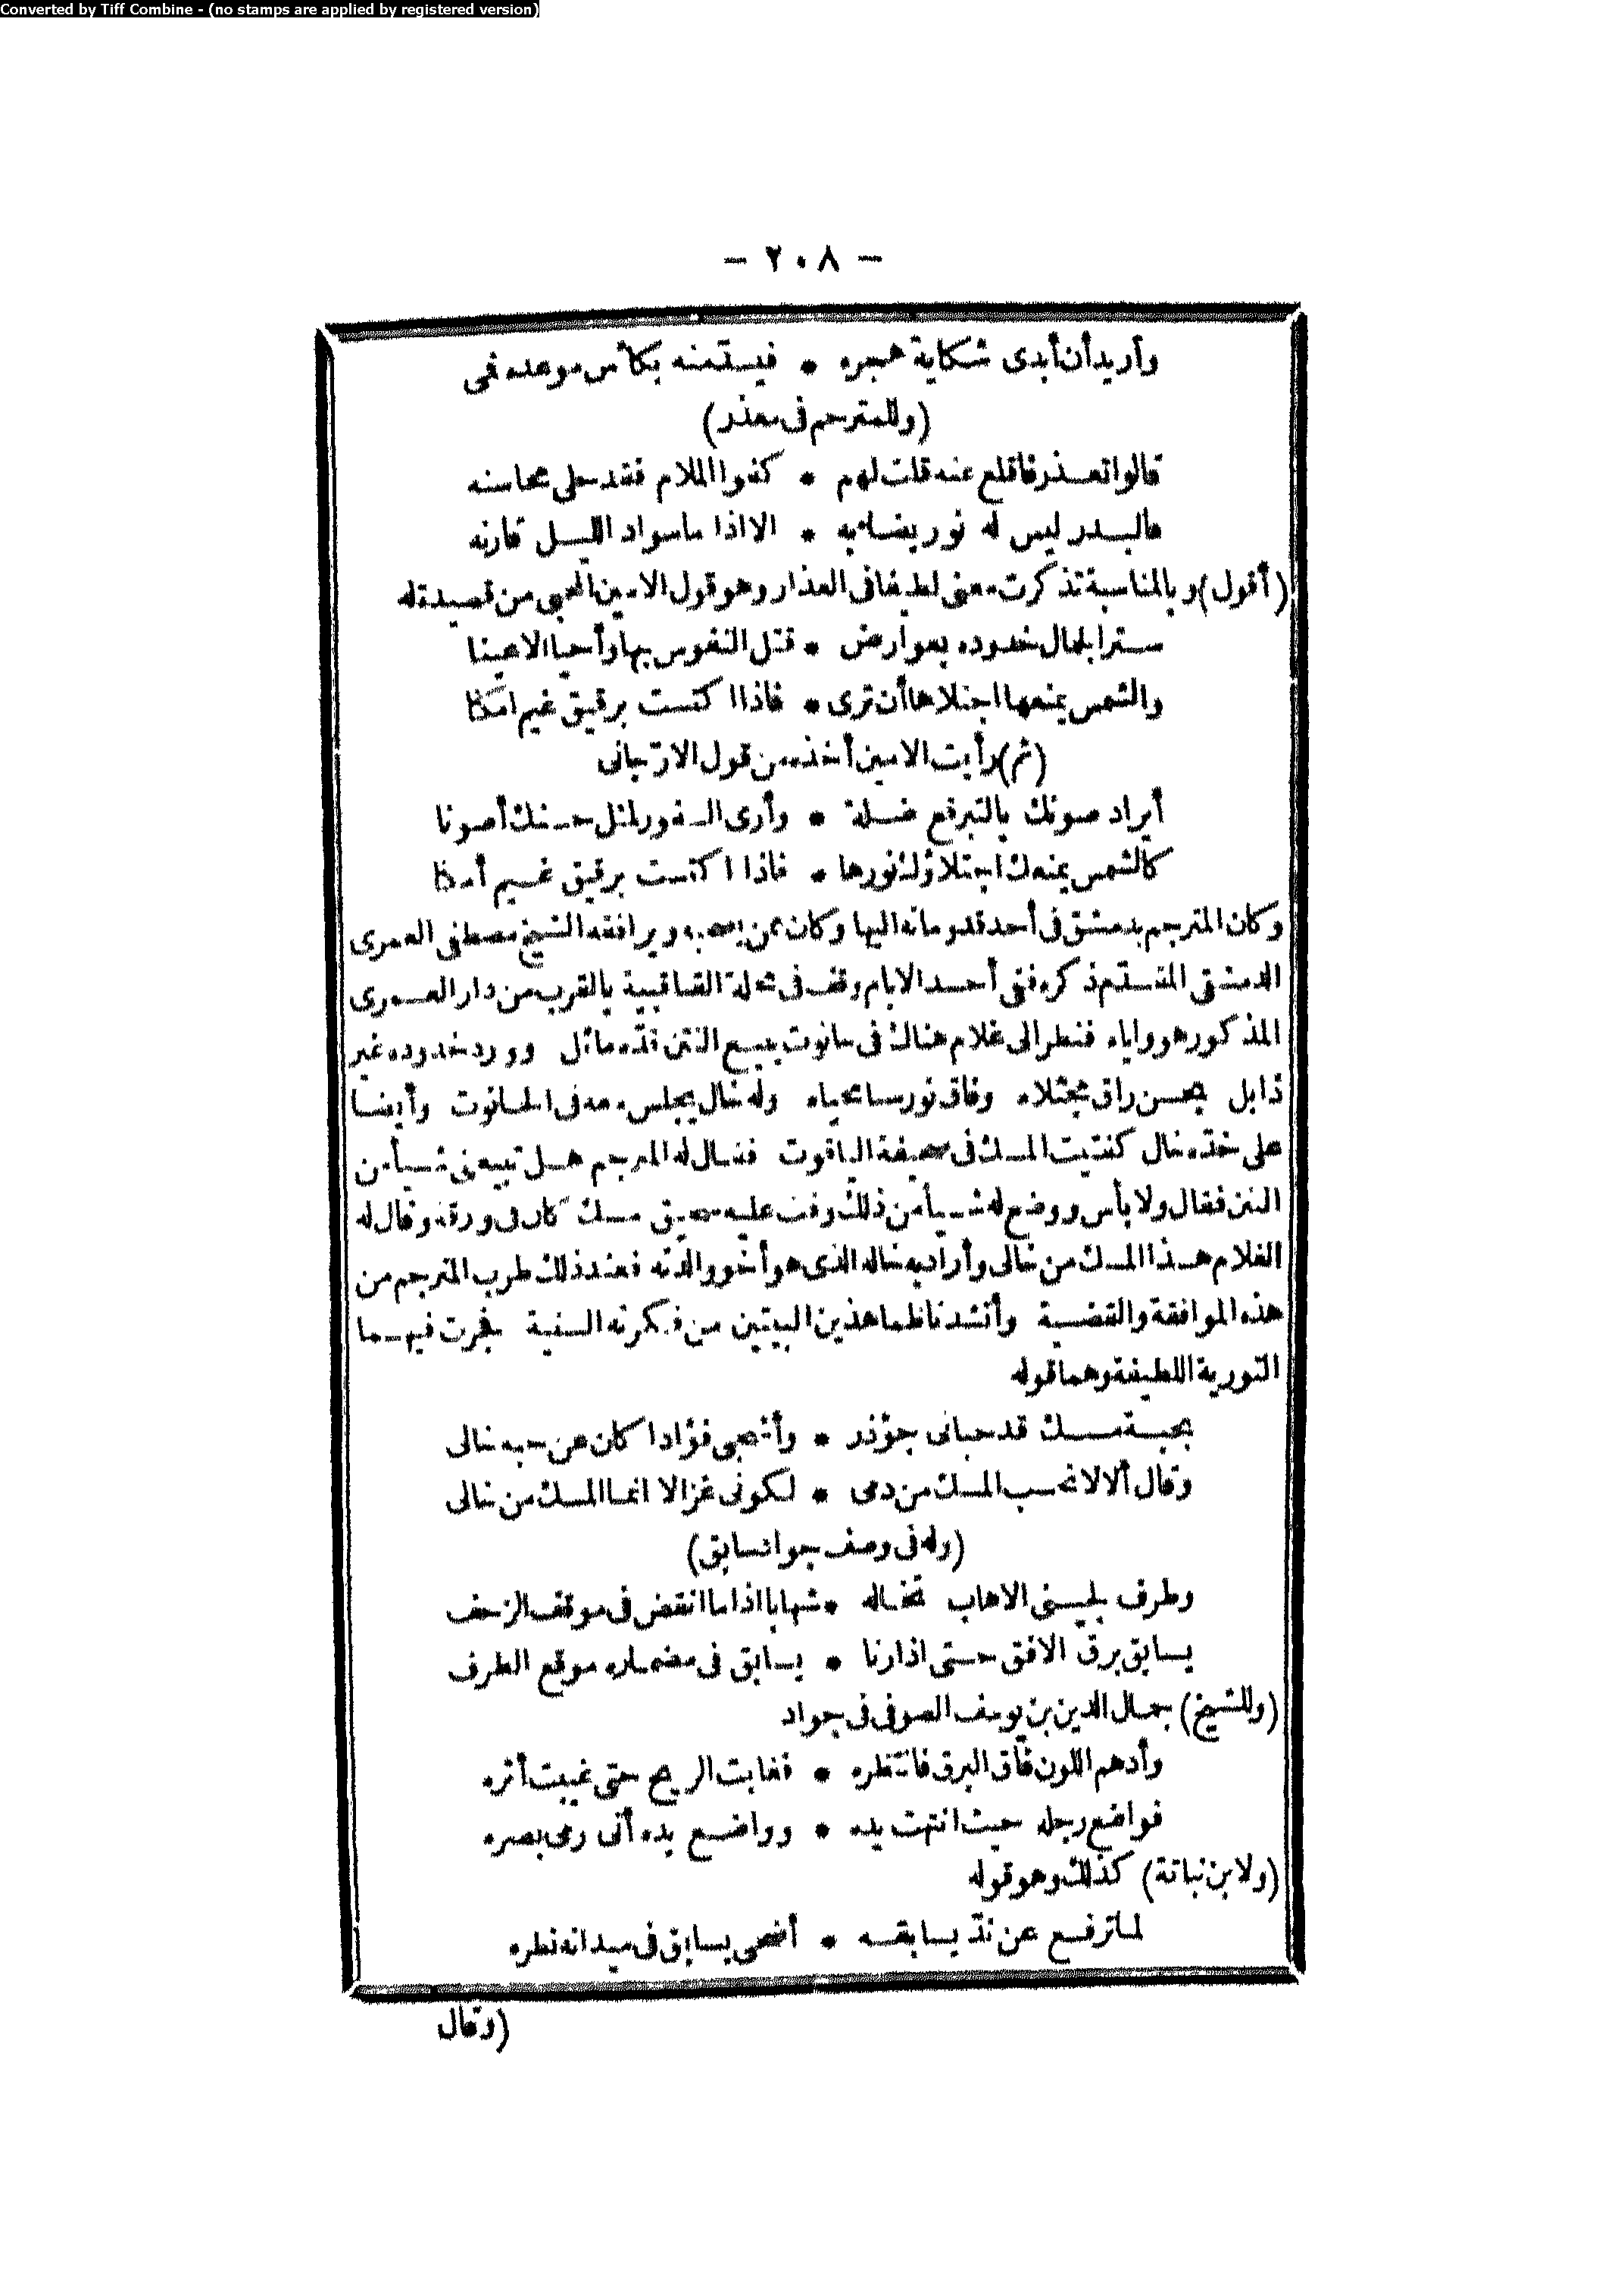 Converted by Tiff Combine - (no stamps are applied by registered version)
- ٢٠٨ -
وأريد أن أبدى شكاية هجره * فيستمنه بكأس موعده فى
(وللمترجم فى معذر)
قالوا تعذر فاقلع عنه قلت لهم * كفوا الملام فقد حلى محاسنه
فالبدر ليس له نور يضاء به * الا اذا ما سواد الليل قارنه
(أقول) وبالمناسبة تذكرت معنى لطيفا فى العذار وهو قول الامين المحبى من قصيدة له
ستر الجمال خدوده بعوارض * قتل النفوس بها وأحيا الاعينا
والشمس يمنعها اجتلاها أن ترى * فاذا اكتست برقيق غيم امكنا
(ثم) رأيت الامين أخذه من قول الارّجانى
أيراد صونك بالتبرقع ضلة * وأرى السفور لمثل حسنك أصونا
كالشمس يمنعك اجتلاؤك نورها * فاذا اكتست برقيق غيم أمكنا
وكان المترجم بدمشق فى أحد قدوماته اليها وكان ممن يصحبه ويرافقه الشيخ مصطفى العمرى
الدمشقى المتقدّم ذكره ففى أحد الايام وقف فى محلة القباقبية بالقرب من دار العمرى
المذكور هو واياه فنظر الى غلام هناك فى حانوت يبيع التتن قدّه مائل وورد خدوده غير
ذابل بحسن راق مجتلاه وفاق نور سنا محياه وله خال يجلس معه فى الحانوت وأيضا
على خدّه خال كفتيت المسك فى صحيفة الياقوت فقال له المترجم هل تبيعنى شيأ من
التتن فقال ولا بأس ووضع له شيأ من ذلك وفت عليه سحيق مسك كان فى ورقة وقال له
الغلام هذا المسك من خالى وأراد به خاله الذى هو أخو والدته فعند ذلك طرب المترجم من
هذه الموافقة والقضية وأنشد ناظما هذين البيتين من فكرته السنية فجرت فيهما
التورية اللطيفة وهما قوله
بحبة مسك قد حبانى جؤذر * وأشجى فؤادا كان عن حبه خالى
وقال ألا لا تحسب المسك من دمى * لكونى غزالا انما المسك من خالى
(وله فى وصف جواد سابق)
وطرف لجينى الاهاب تخاله * شهابا اذا ما انقض فى موقف الزحف
يسابق برق الافق حتى اذا رنا * يسابق فى مضماره موقع الطرف
(وللشيخ) جمال الدين بن يوسف الصوفى فى جواد
وأدهم اللون فاق البرق فانتظره * فغابت الريح حتى غيبت أثره
فواضع رجله حيث انتهت يده * وواضع يده أنى رمى بصره
(ولابن نباتة) كذلك وهو قوله
لما ترفع عن ندّ يسابقه * أضحى يسابق فى ميدانه نظره
(وقال